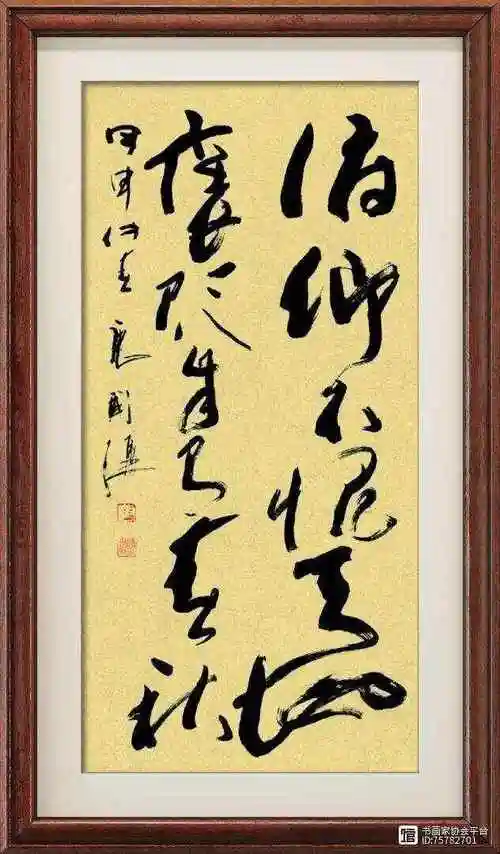 俯仰不愧天地
褒贬自有春秋
甲申仲春
书画家协会平台
ID:75782701